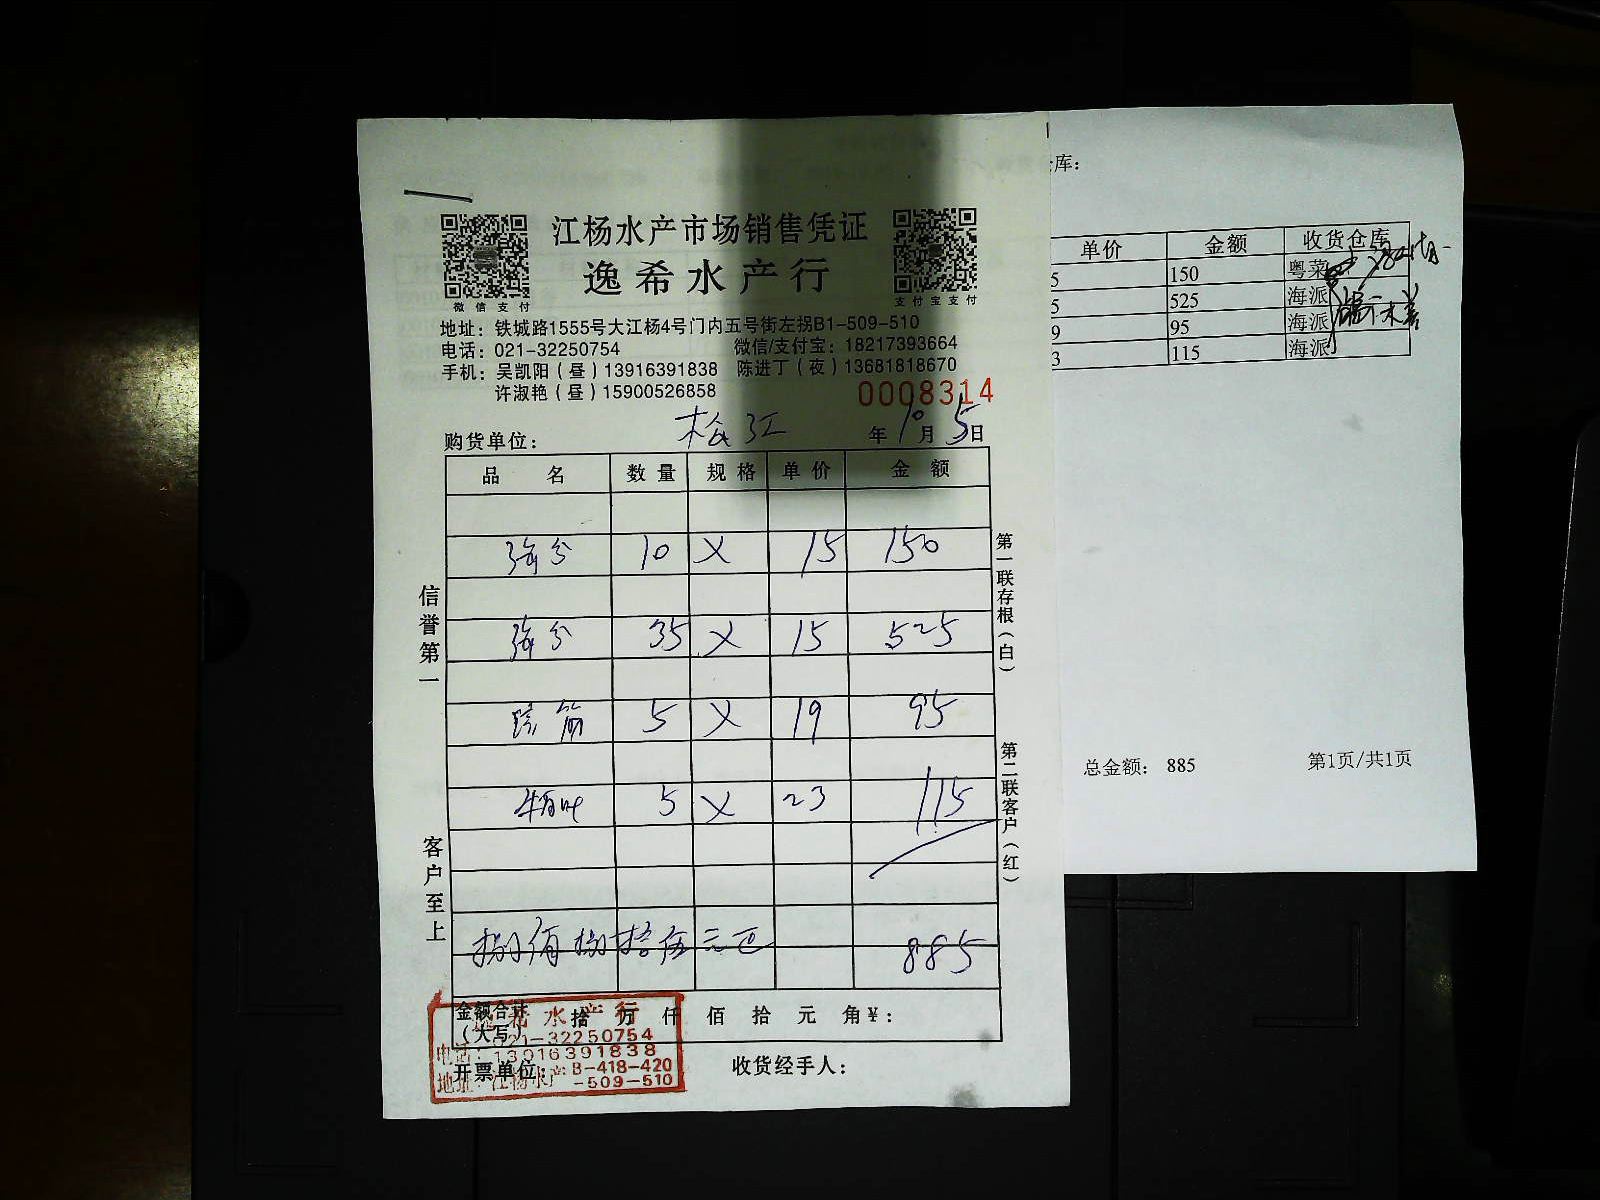 江杨水产市场销售凭证
逸希水产行
微信支付
支付宝支付
地址：铁城路1555号大江杨4号门内五号街左拐B1-509-510
电话：021-32250754 微信/支付宝：18217393664
手机：吴凯阳（昼）13916391838 陈进丁（夜）13681818670
许淑艳（昼）15900526858
0008314
购货单位： 松江 年 10 月 5 日
品名 数量 规格 单价 金额
10 X 15 150
35 X 15 525
5 X 19 95
5 X 23 115
捌佰捌拾伍元正 885
金额合计（大写） 拾 万 仟 佰 拾 元 角 ¥：
开票单位： 收货经手人：
信誉第一
客户至上
第一联存根（白）
第二联客户（红）
水产行
电话：021-32250754
13916391838
地址：江杨水产B-418-420
-509-510
库：
单价 金额 收货仓库
5 150 粤菜
5 525 海派
9 95 海派
3 115 海派
总金额： 885 第1页/共1页